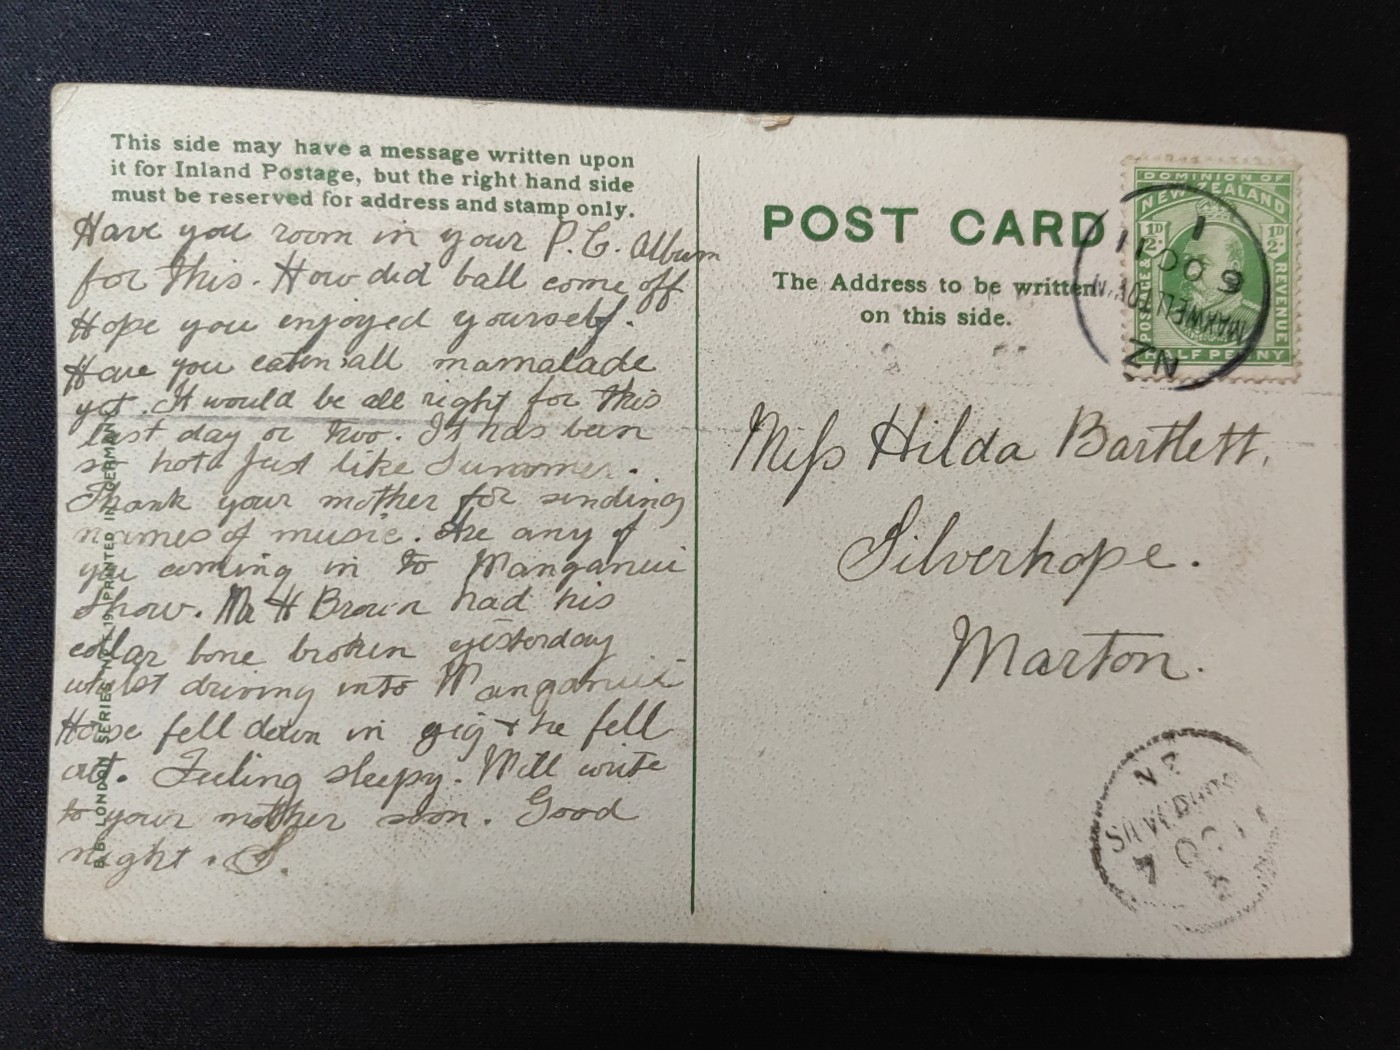 This side may have a message written upon
it for Inland Postage, but the right hand side
must be reserved for address and stamp only.
Have you room in your P.C. album
for this. How did ball come off
Hope you enjoyed yourself.
Have you eaten all mamalade
yet. It would be all right for this
last day or two. It has been
so hot. Just like Summer.
Thank your mother for sending
names of music. Are any of
you coming in to Wanganui
Show. Mr H Brown had his
collar bone broken yesterday
whilst driving into Wanganui
Horse fell down in gig & he fell
out. Feeling sleepy. Will write
to your mother soon. Good
night. S.
B.B. LONDON SERIES PRINTED IN GERMANY
POST CARD
The Address to be written
on this side.
DOMINION OF
NEW ZEALAND
POSTAGE & REVENUE
½D ½D
HALF PENNY
1
6 OC 11
MAXWELLTOWN
NZ
Miss Hilda Bartlett,
Silverhope.
Marton.
NZ
SILVERHOPE
7 OC 11